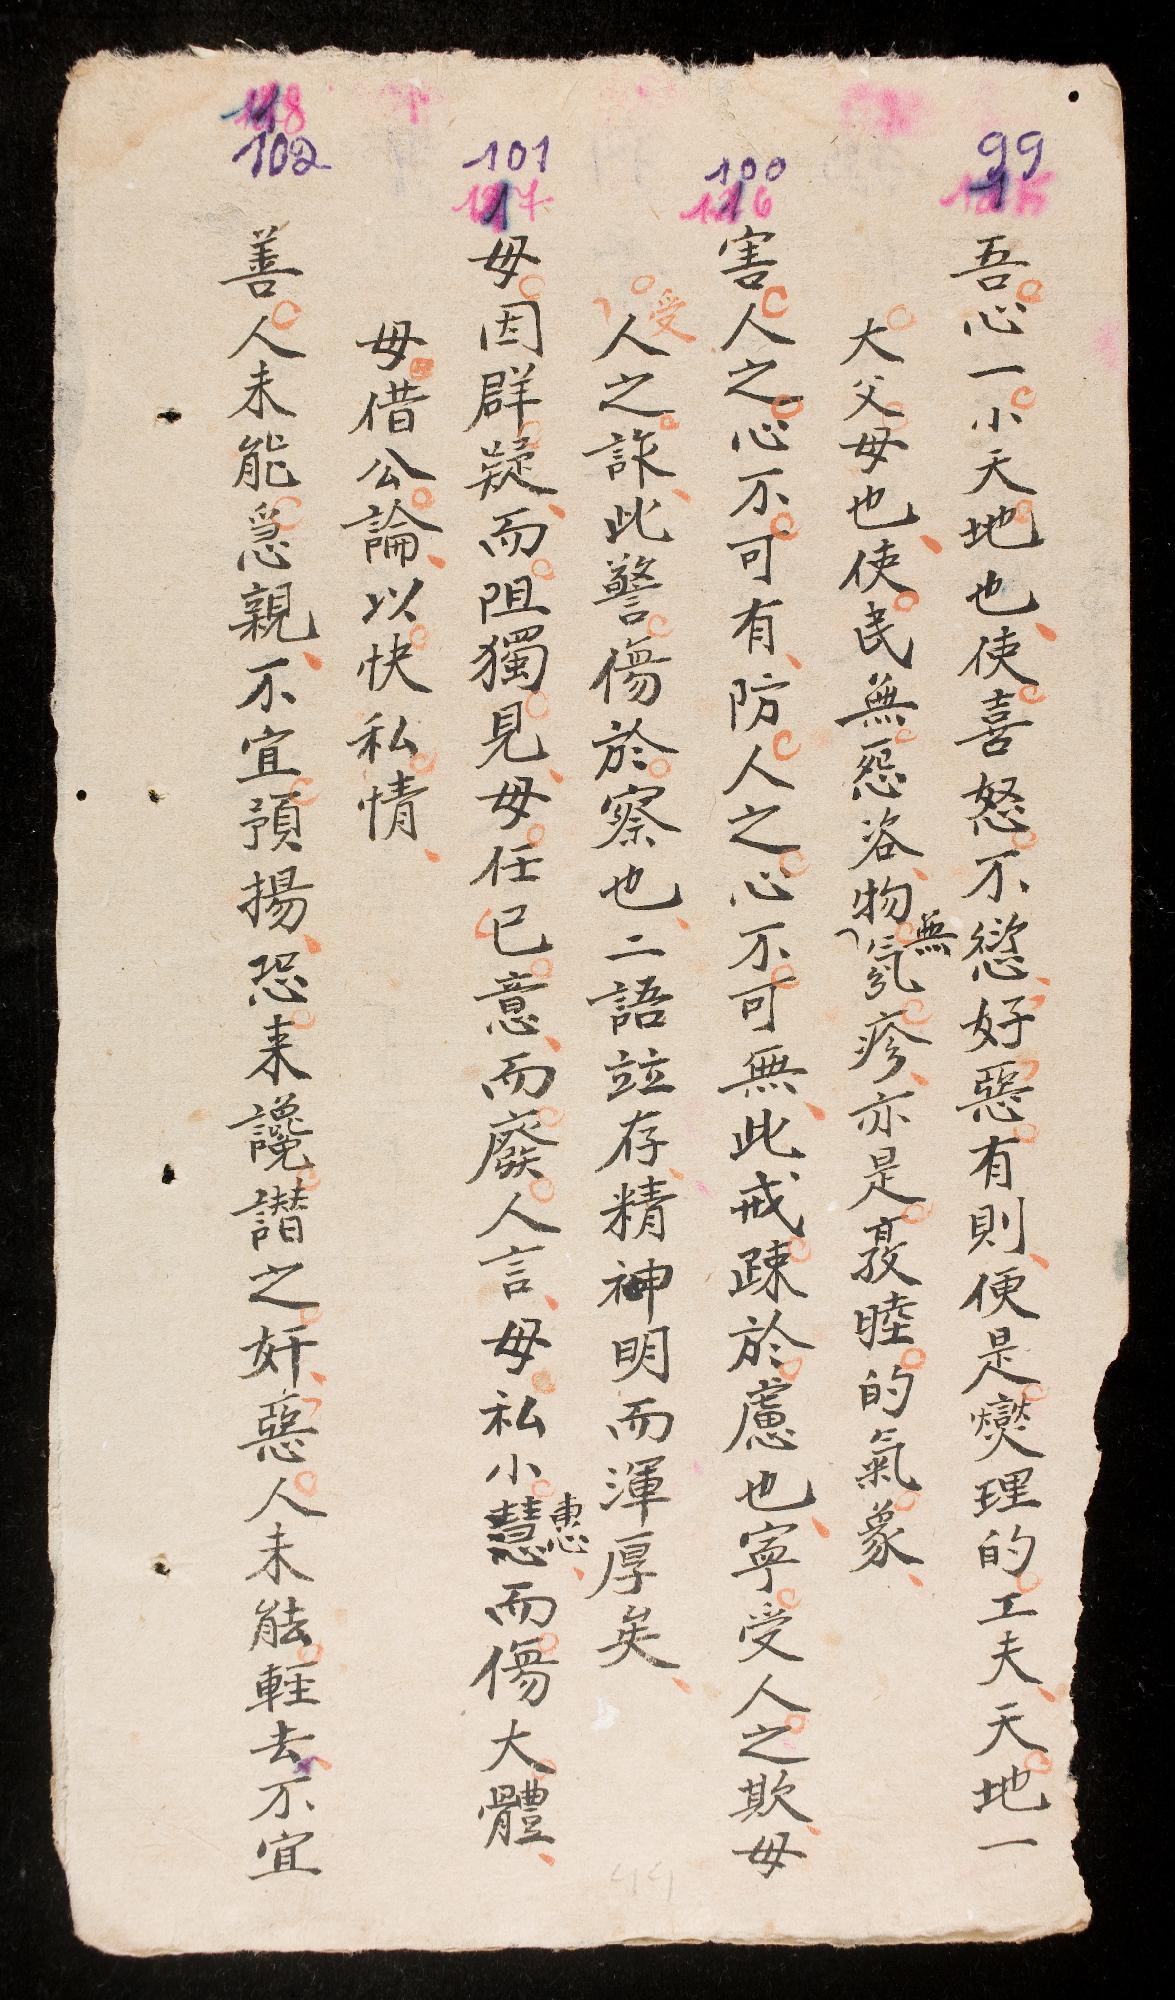 99
吾心一小天地也使喜怒不愆好惡有則便是燮理的工夫天地一
大父母也使民無怨咨物無氛疹亦是敦睦的氣象
100
116
害人之心不可有防人之心不可無此戒疎於慮也寧受人之欺毋
受人之詐此警傷於察也二語竝存精神明而渾厚矣
101
117
毋因群疑而阻獨見毋任已意而廢人言毋私小慧惠而傷大體
毋借公論以快私情
118
102
善人未能急親不宜預揚恐来讒譖之奸惡人未能輕去不宜